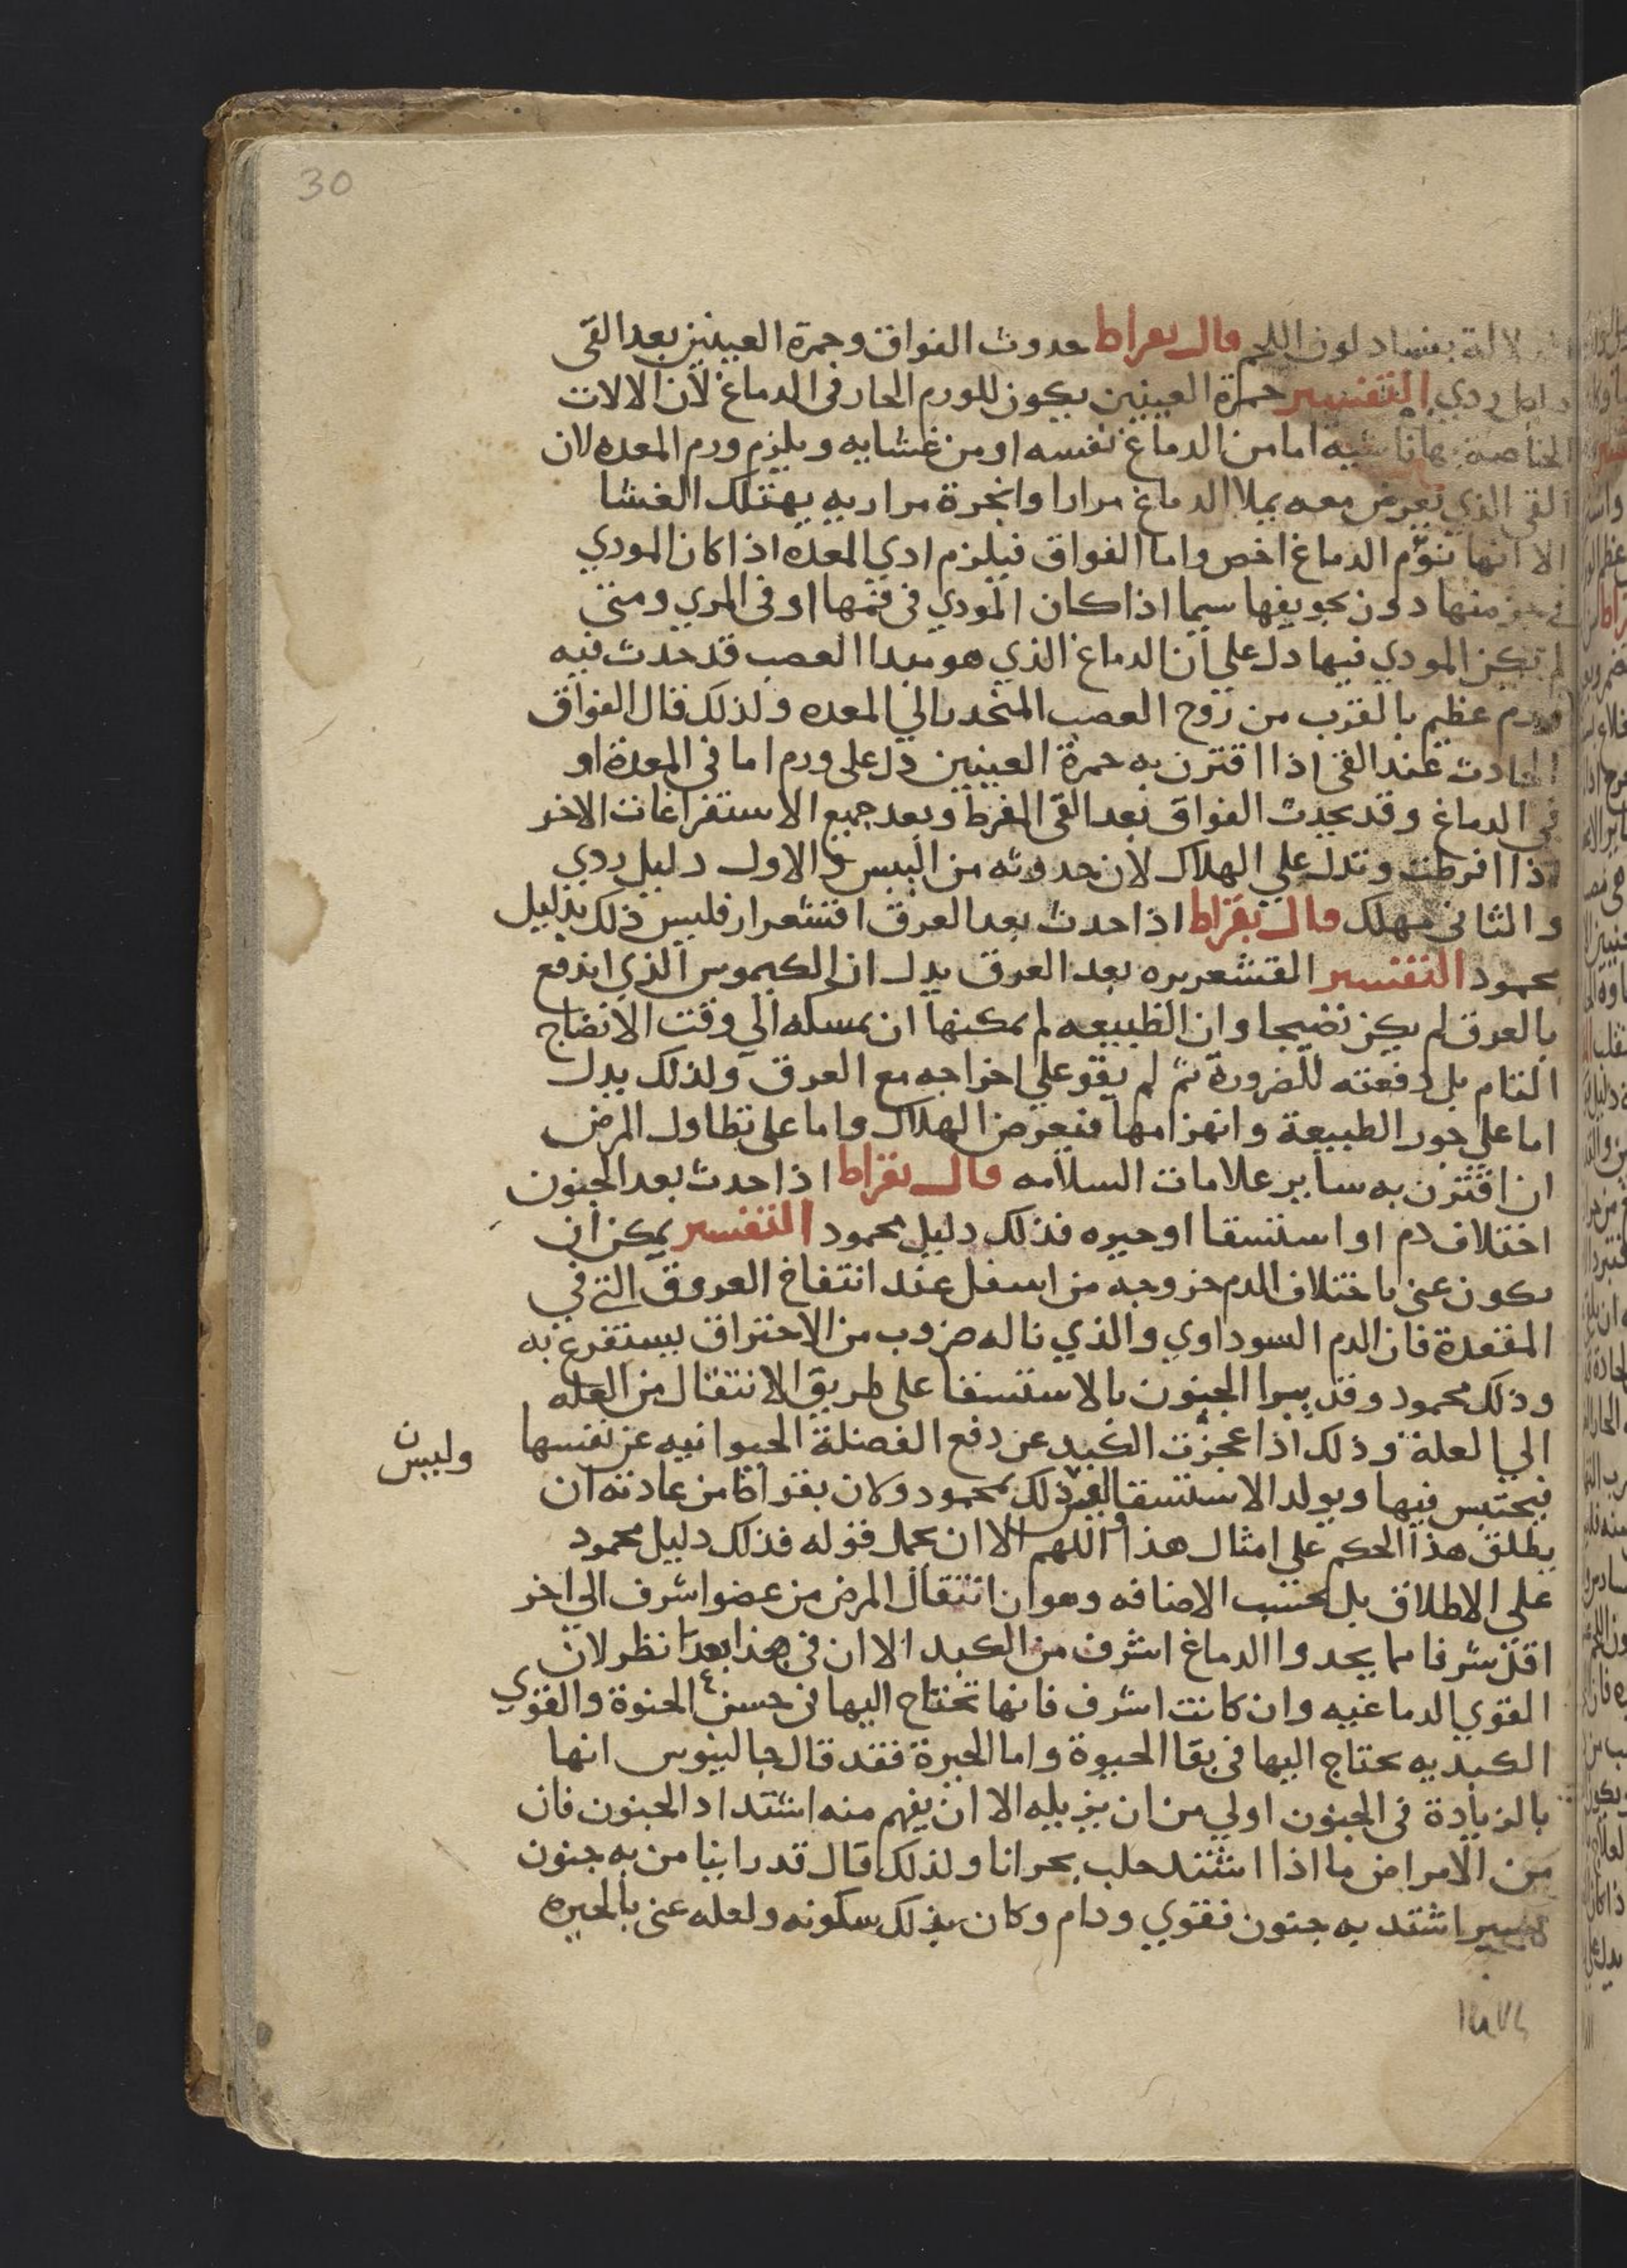 30
لالة بفساد لون اللحم قال بقراط حدوث الفواق وحمرة العينين بعد القى
دليل ردي التفسير حمرة العينين يكون للورم الحار فى الدماغ لان الالات
الخاصة بها ناشية اما من الدماغ نفسه او من غشايه ويلزم ورم المعده لان
القى الذي يعرض معه يملا الدماغ مرارا وابخرة مراريه يهتلك الغشا
الا انها تنؤم الدماغ اخص واما الفواق فيلزم ادي المعده اذا كان المودي
فى جز منها دون تجويفها سيما اذا كان المودي فى فمها او فى المري ومتى
لم يكن المودي فيها دل على ان الدماغ الذي هو مبدا العصب قد حدث فيه
ورم عظيم بالقرب من زوج العصب المنحدر الي المعده ولذلك قال الفواق
الحادث عند القى اذا اقترن به حمرة العينين دل على ورم اما فى المعدة او
في الدماغ وقد يحدث الفواق بعد القى المفرط وبعد جميع الاستفراغات الاخر
اذا افرطت وتدل علي الهلاك لان حدوثه من اليبس والاول دليل ردي
والثانى مهلك قال بقراط اذا حدث بعد العرق اقشعرار فليس ذلك بدليل
محمود التفسير القشعريره بعد العرق يدل ان الكيموس الذي اندفع
بالعرق لم يكن نضيجا وان الطبيعه لم يمكنها ان تمسكه الي وقت الانضاج
التام بل دفعته للضرورة ثم لم يقو علي اخراجه مع العرق ولذلك يدل
اما علي خور الطبيعة وانهزامها فيعرض الهلاك واما على تطاول المرض
ان اقترن به ساير علامات السلامه قال بقراط اذا حدث بعد الجنون
اختلاف دم او استسقا او حيره فذلك دليل محمود التفسير يمكن ان
يكون عنى باختلاف الدم خروجه من اسفل عند انتفاخ العروق التى في
المقعدة فان الدم السوداوي والذي ناله ضروب من الاحتراق يستفرغ به
وذلك محمود وقد يبرا الجنون بالاستسقا على طريق الانتقال من العله
الي العلة وذلك اذا عجزت الكبد عن دفع الفضلة الحيوانيه عن نفسها
وليس
فيحتبس فيها ويولد الاستسقا وليس ذلك بمحمود ولان بقراط من عادته ان
يطلق هذا الحكم على امثال هذا اللهم الا ان يحمل قوله فذلك دليل محمود
علي الاطلاق بل بحسب الاضافه وهو ان انتقال المرض من عضو اشرف الي اخر
اقل شرفا مما يحد والدماغ اشرف من الكبد الا ان فى هذا بعد نظر لان
القوي الدماغيه وان كانت اشرف فانها تحتاج اليها فى حسن الحيوة والقوي
الكبديه يحتاج اليها فى بقا الحيوة واما الحيرة فقد قال جالينوس انها
بالزيادة فى الجنون اولي من ان يزيله الا ان يفهم منه اشتداد الجنون فان
من الامراض ما اذا اشتد جلب بحرانا ولذلك قال قد راينا من به جنون
يسير اشتد به جنون فقوي ودام وكان بذلك سكونه ولعله عنى بالحيره